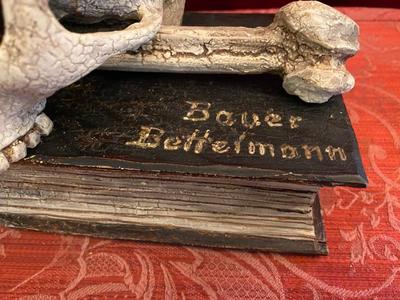 Bauer
Bettelmann